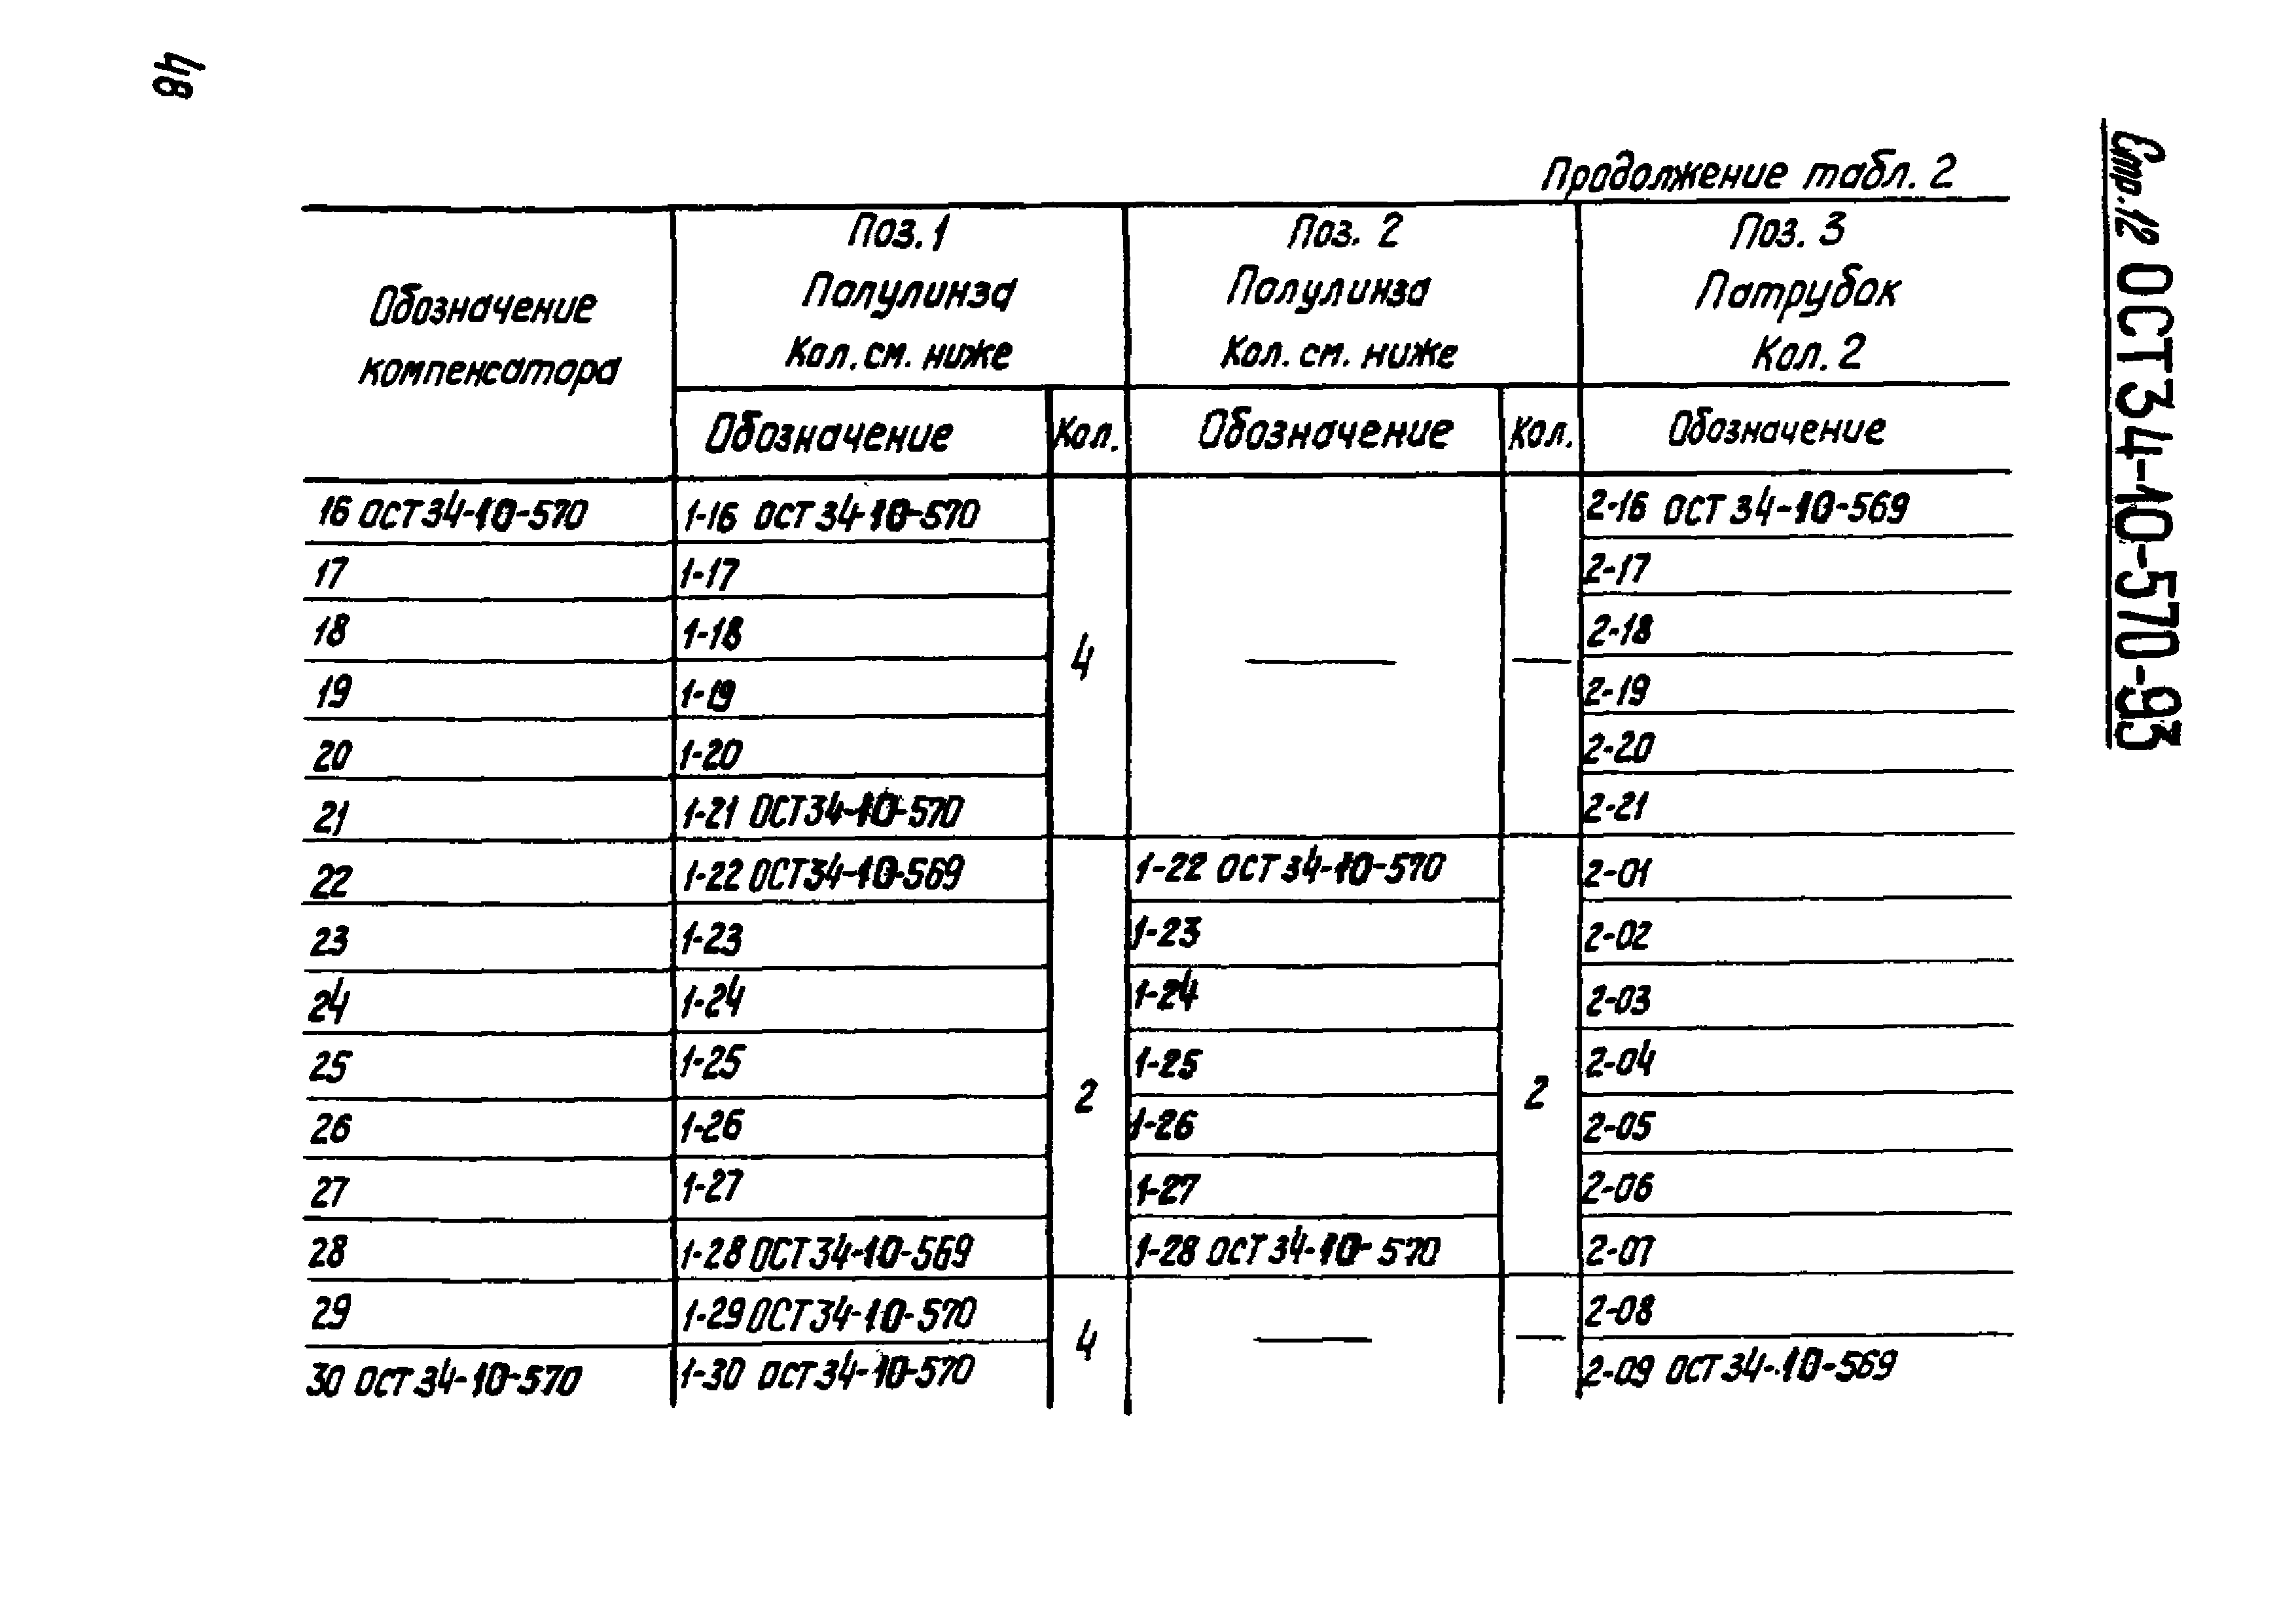 48
Стр.12 ОСТ 34-10-570-93
Продолжение табл. 2
Обозначение компенсатора | Поз. 1 Полулинза Кол. см. ниже | Поз. 2 Полулинза Кол. см. ниже | Поз. 3 Патрубок Кол. 2
Обозначение | Кол. | Обозначение | Кол. | Обозначение
16 ОСТ 34-10-570 | 1-16 ОСТ 34-10-570 | 4 | — | — | 2-16 ОСТ 34-10-569
17 | 1-17 | 2-17
18 | 1-18 | 2-18
19 | 1-19 | 2-19
20 | 1-20 | 2-20
21 | 1-21 ОСТ 34-10-570 | 2-21
22 | 1-22 ОСТ 34-10-569 | 2 | 1-22 ОСТ 34-10-570 | 2 | 2-01
23 | 1-23 | 1-23 | 2-02
24 | 1-24 | 1-24 | 2-03
25 | 1-25 | 1-25 | 2-04
26 | 1-26 | 1-26 | 2-05
27 | 1-27 | 1-27 | 2-06
28 | 1-28 ОСТ 34-10-569 | 1-28 ОСТ 34-10-570 | 2-07
29 | 1-29 ОСТ 34-10-570 | 4 | — | — | 2-08
30 ОСТ 34-10-570 | 1-30 ОСТ 34-10-570 | 2-09 ОСТ 34-10-569